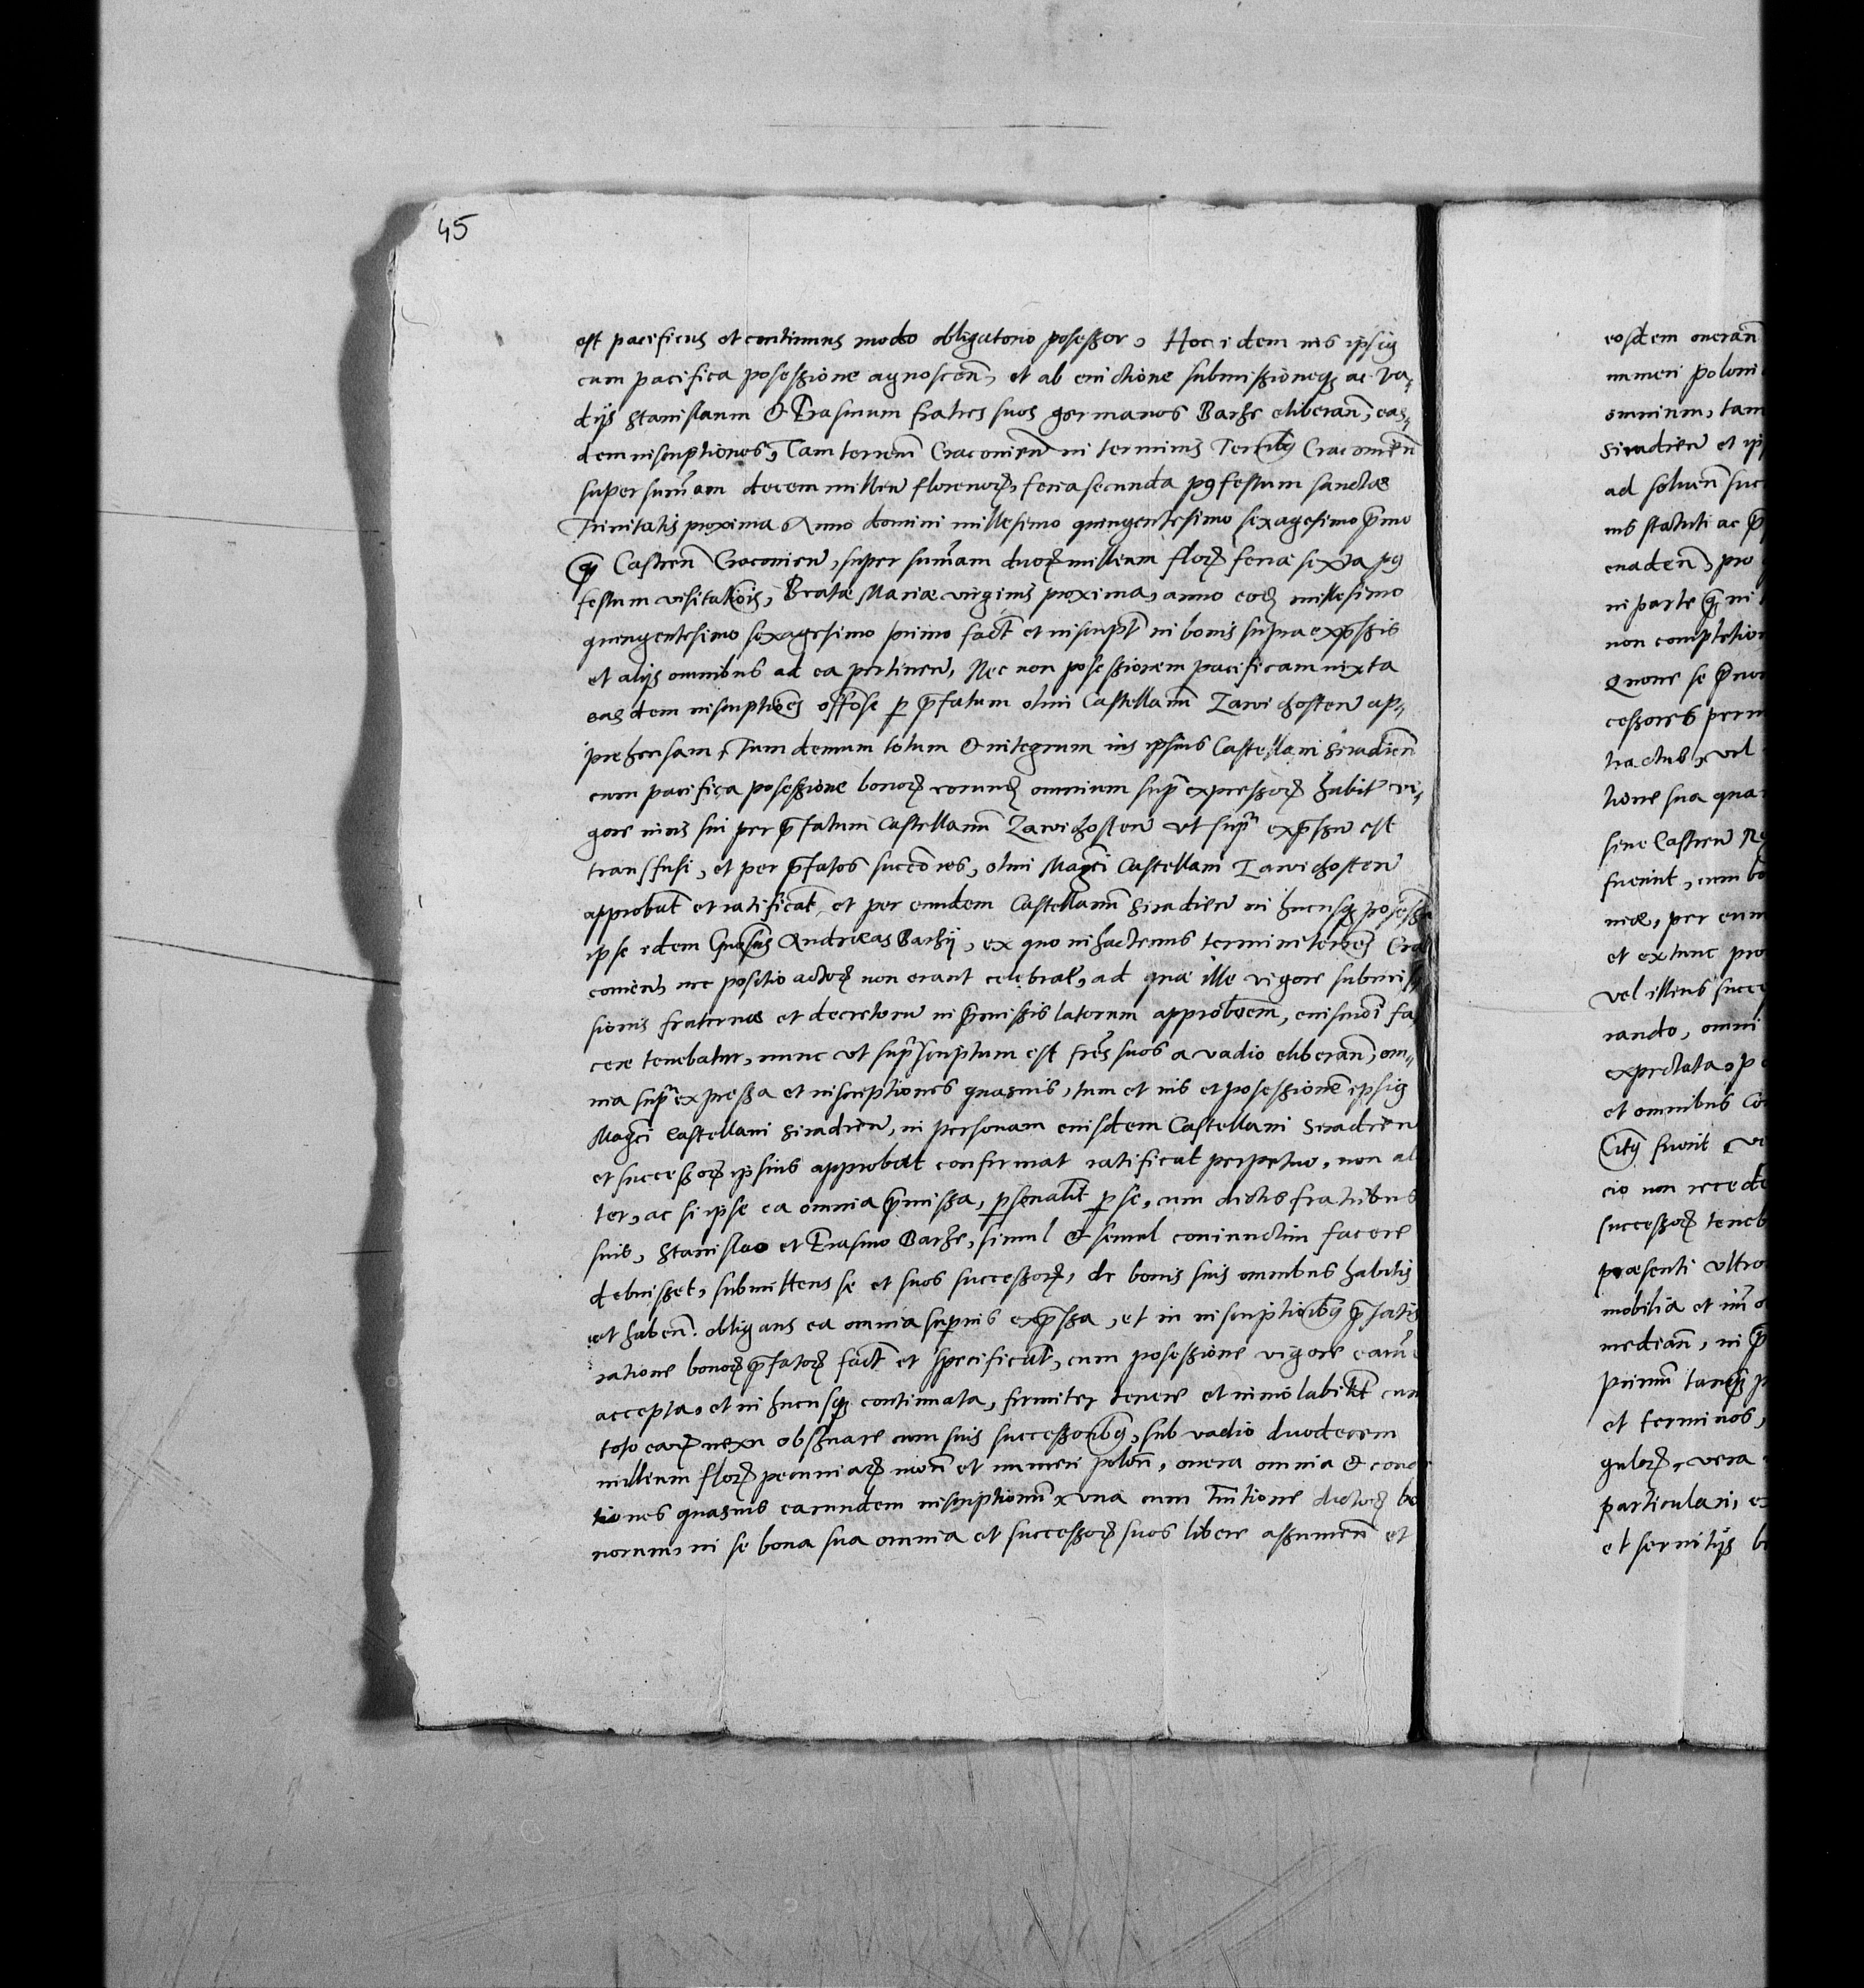 45
est pacificus et continuus modo obligatorio possessor, Hoc idem ius ipsius
cum pacifica possessione agnoscen̄, et ab evictione submissioneq̨ ac va„
dijs Stanislaum & Erasmum fratres suos germanos Barzi eliberan̄, eas„
dem inscriptiones, Tam terren̄ Cracovien̄ in terminis Terrībq̨ Cracovien̄
super sum̄am decem millen florenoꝝ, feria secunda pꝰ festum sanctae
Trinitatis proxima Anno domini millesimo quingentesimo sexagesimo p̄mo
q̄ꝫ Castren̄ Cracovien̄, super sum̄am duoꝝ millenm floꝝ feria sexta pꝰ
festum visitatiōis, Beatae Mariae virginis proxima, anno eodē millesimo
quingentesimo sexagesimo primo fact̄ et inscript̄ in bonis supra exp̄ssis
et alijs omnibus ad ea pertinen̄, Nec non possessionem pacificam iuxta
easdem inscriptiōēs ꝑ p̄fatum olim Castellanū Zawichosten̄ ap„
prehensam, Tum demum totum & integrum ius ipsius Castellani Siradien̄
cum pacifica possessione bonoꝝ eorundē omnium supª expressoꝝ habit̄ vi„
gore iuris sui per p̄fatum Castellanū Zawichosten̄ ut supª exp̄ssū est
transfusi, et per p̄fatos succōres, olim Magc̄i Castellani Zawichosten̄
approbat̄ et ratificat̄ et per eundem Castellanū Siradien̄ in hucusq̨ possess
ipse idem Gn̄osus Andreas Barzij, ex quo in hactenus termini terrēs Cra
covien̄, nec positio actoꝝ non erant celebrat̄, ad quae ille vigore submis
sionis fraternae et decretorū in p̄missis latorum approbōem, eiusmōi fa
cere tenebatur, nunc ut supª scriptum est fr̄es suos a vadio eliberan̄, om„
nia supª expressa et inscriptiones quasvis, tum et ius et possessionē ipsius
Magc̄i Castellani Siradien̄, in personam eiusdem Castellani Siradien̄
et successoꝝ ipsius approbat confirmat ratificat perpetuo, non al
ter, ac si ipse ea omnia p̄missa, ꝑsonalit̄ ꝑ se, cum dictis fratribus
suis, Stanislao et Erasmo Barzi, simul & semel coniunctim facere
debuisset, submittens se et suos successoꝝ, de bonis suis omnibus habitis
et haben̄. obligans ea omnia superius exp̄ssa, et in inscriptioībq̨ p̄fatis
ratione bonoꝝ p̄fatoꝝ fact̄ et specificat̄, cum possessione vigore earū
accepta, et in hucusq̨ continuata, firmiter tenere et inviolabilit̄ cum
toto eaꝝ nexu obs̄uare cum suis successoribq̨, sub vadio duodecem
millium floꝝ pecuniaꝝ mon̄ et numeri polon̄, onera omnia & condi
tiones quasvis earundem inscriptionū una cum tuitione dictoꝝ bo
norum, in se bona sua omnia et successoꝝ suos libere assumen̄ et
eosdem oneran̄
numeri poloni
omnium, tam
Siradien̄ et ip
ad solven̄ suc
ius statuti ac p̄
evaden̄, pro
in parte q̄ꝫ in
non completion
Quove se p̄mo
cessores perm
tractus, vel
tione sua qua
sine Castren̄
fuerint, cum bo
niae, per eum
et extunc pro
vel illius succe
rando, omni
expectata, p
et omnibus co
Citq̨ fuerit, ve
cio non recede
successoꝝ teneb
praesenti ultro
mobilia et im̄o
median̄, in p̄
primū tanq̨ p
et terminos,
guloꝝ, vera
particulari, ex
et servitijs b